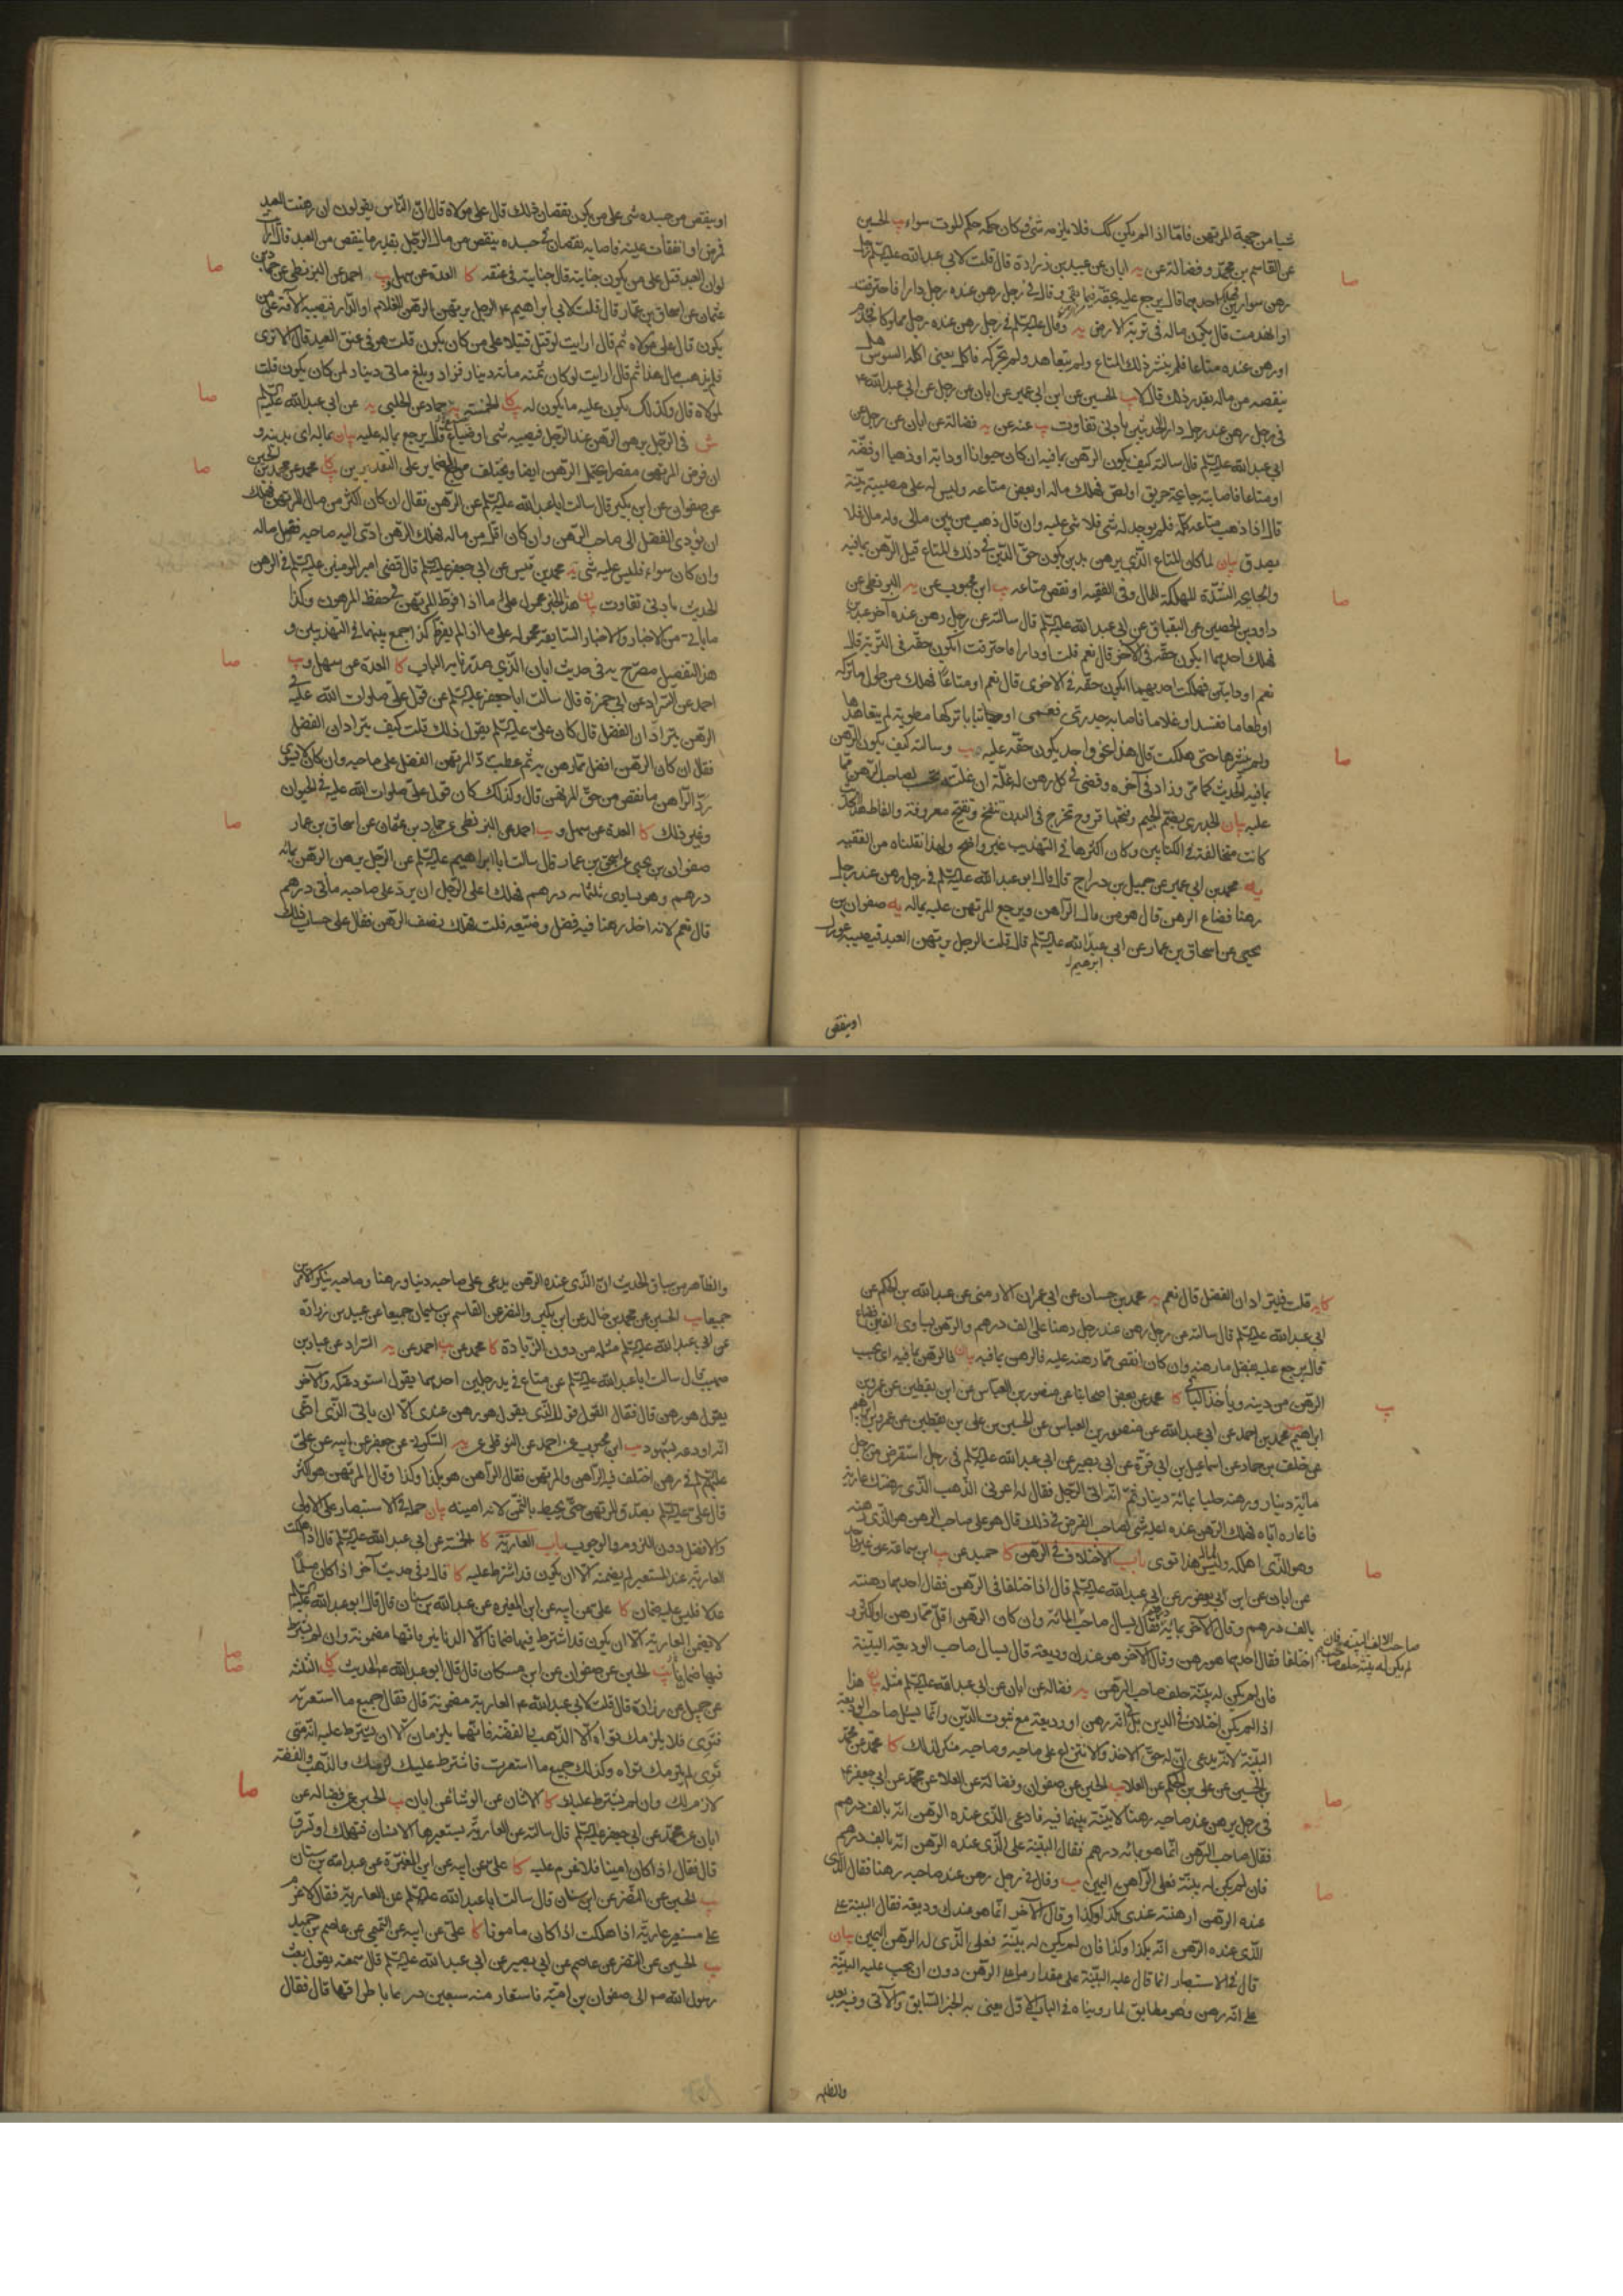 شيا من جهة المرتهن فامّا اذا لم يكن كك فلا يلزمه شئ وكان حكمه حكم الموت سواء يب الحسين
عن القاسم بن محمد و فضالة عن يه ابان عن عبيد بن زرارة قال قلت لابي عبد الله عليه السلم رجل
رهن سوارين فهلك احدهما قال يرجع عليه بحقه فيما بقي وقال في رجل رهن عنده رجل دارا فاحترقت
او انهدمت قال يكون ماله في تربة الارض يه وقال عليه السلم في رجل رهن عنده رجل مملوكا فجذم
او رهن عنده متاعا فلم ينشر ذلك المتاع ولم يتعاهده ولم يحركه فاكل يعني اكله السوس هل
ينقصه من ماله بقدر ذلك قال لا يب الحسين عن ابن ابي عمير عن ابان عن رجل عن ابي عبد الله ع
في رجل رهن عند رجل دار الحديث بادنى تفاوت يب عنه عن يه فضالة عن ابان عن رجل عن
ابي عبد الله عليه السلم قال سالته كيف يكون الرهن بما فيه ان كان حيوانا او دابة او ذهبا او فضة
او متاعا فاصابه جايحة حريق او لص فهلك ماله او بعض متاعه وليس له على مصيبته بيّنة
قال اذا ذهب متاعه كلّه فلم يوجد له شئ فلا شئ عليه وان قال ذهب من بين مالي وله مال فلا
يصدق بيان لما كان المتاع الذي يرهن بدين يكون حق الدين في ذلك المتاع قيل الرهن بما فيه
والجايحة الشدّة المهلكة للمال وفي الفقيه او نقص متاعه يب ابن محبوب عن يه البزنطي عن
داود بن الحصين عن البقباق عن ابي عبد الله عليه السلم قال سالته عن رجل رهن عنده آخر عبدين
فهلك احدهما ايكون حقه في الآخر قال نعم قلت او دارا فاحترقت ايكون حقه في التربة قال
نعم او دابتين فهلكت احديهما ايكون حقه في الاخرى قال نعم او متاعا فهلك من طول ما تركه
او طعاما ففسد او غلاما فاصابه جدري فعمي او ثيابا تركها مطوية لم يتعاهدها
ولم ينشرها حتى هلكت قال هذا نحو واحد يكون حقه عليه يب وسالته كيف يكون الرهن
بما فيه الحديث كما مرّ وزاد في آخره وقضى في كل رهن له غلّة ان غلّته تحسب لصاحب الرهن مما
عليه بيان الجدري بضم الجيم وفتحها قروح تخرج في البدن تنفخ وتقيح معروفة والفاظ هذا الحديث
كانت متخالفة في الكتابين وكان اكثرها في التهذيب غير واضح ولهذا نقلناه من الفقيه
يه محمد بن ابي عمير عن جميل بن دراج قال قال ابو عبد الله عليه السلم في رجل رهن عند رجل
رهنا فضاع الرهن قال هو من مال الراهن ويرجع المرتهن عليه بماله يه صفوان بن
يحيى عن اسحاق بن عمار عن ابي عبد الله عليه السلم قال قلت الرجل يرتهن العبد فيصيبه عور
ابرهيم
او ينقص
او ينقص من جسده شئ على من يكون نقصان ذلك قال على مولاه قال ان الناس يقولون ان رهنت العبد
فمرض او انفقات عينه فاصابه نقصان في جسده ينقص من مال الرجل بقدر ما ينقص من العبد قال ارايت
لو ان العبد قتل على من يكون جنايته قال جنايته في عنقه كا العدة عن سهل و يب احمد عن البزنطي عن حماد بن
عثمان عن اسحاق بن عمار قال قلت لابي ابراهيم ع الرجل يرتهن الرهن الغلام او الدار فيصيبه الآفة على من
يكون قال على مولاه ثم قال ارايت لو قتل قتيلا على من كان يكون قلت هو في عنق العبد قال الا ترى
فلم يذهب مال هذا ثم قال ارايت لو كان ثمنه مأته دينار فزاد وبلغ مأتي دينار لمن كان يكون قلت
لمولاه قال وكذلك يكون عليه ما يكون له يب كا الخمسة يه حماد عن الحلبي يه عن ابي عبد الله عليه السلم
ش في الرجل يرهن الرهن عند الرجل فيصيبه شئ او ضياع قال يرجع بماله عليه بيان بماله اي بدينه و
ان فرض المرتهن مقصرا يحتمل الرهن ايضا ويختلف مرجع الضماير على التقديرين يب كا محمد عن محمد بن الحسين
عن صفوان عن ابن بكير قال سالت ابا عبد الله عليه السلم عن الرهن فقال ان كان اكثر من مال المرتهن فهلك
ان يؤدي الفضل الى صاحب الرهن وان كان اقل من ماله فهلك الرهن ادّى اليه صاحبه فضل ماله
وان كان سواء فليس عليه شئ يه محمد بن قيس عن ابي جعفر عليه السلم قال قضى امير المومنين عليه السلم في الرهن
الحديث بادنى تفاوت بيان هذا الخبر محمول على ما اذا فرّط المرتهن في حفظ المرهون وكذا
ما ياتي من الاخبار والاخبار السابقة محمولة على ما اذا لم يفرط كذا جمع بينهما في التهذيبين و
هذا التفصيل مصرّح به في حديث ابان الذي صدّرنا به الباب كا العدة عن سهل و يب
احمد عن السّراد عن ابي حمزة قال سالت ابا جعفر عليه السلم عن قول علي صلوات الله عليه في
الرهن يترادّان الفضل قال كان علي عليه السلم يقول ذلك قلت كيف يترادان الفضل
فقال ان كان الرهن افضل مما رهن به ثم عطب ردّ المرتهن الفضل على صاحبه وان كان لا يسوى
ردّ الراهن ما نقص من حق المرتهن قال وكذلك كان قول علي صلوات الله عليه في الحيوان
وغير ذلك كا العدة عن سهل و يب احمد عن البزنطي عن حماد بن عثمان عن اسحاق بن عمار
صفوان بن يحيى عن اسحق بن عمار قال سالت ابا ابراهيم عليه السلم عن الرجل يرهن الرهن بمائة
درهم وهو يساوي ثلثمائه درهم فهلك اعلى الرجل ان يردّ على صاحبه مأتي درهم
قال نعم لانه اخذ رهنا فيه فضل وضيّعه قلت فهلك نصف الرهن فقال على حساب ذلك
كا يه قلت فيترادان الفضل قال نعم يه محمد بن حسان عن ابي عمران الارمني عن عبد الله بن الحكم عن
ابي عبد الله عليه السلم قال سالته عن رجل رهن عند رجل رهنا على الف درهم والرهن يساوي الفين فضاع
قال يرجع عليه بفضل ما رهنه وان كان انقص مما رهنه عليه فالرهن بما فيه بيان فالرهن بما فيه اي يحسب
الرهن من دينه ويأخذ الباقي كا محمد عن بعض اصحابنا عن منصور بن العباس عن ابن يقطين عن عمرو بن
ابراهيم يب محمد بن احمد عن ابي عبد الله عن منصور بن العباس عن الحسين بن علي بن يقطين عن عمرو بن ابراهيم
عن خلف بن حماد عن اسماعيل بن ابي قرة عن ابي بصير عن ابي عبد الله عليه السلم في رجل استقرض من رجل
مائة دينار ورهنه حليا بمائة دينار ثم انه اتى الرجل فقال له اعرني الذهب الذي رهنتك عارية
فاعاره اياه فهلك الرهن عنده اعليه شئ لصاحب القرض في ذلك قال هو على صاحب الرهن هو الذي رهنه
وهو الذي اهلكه وليس لمال هذا توى باب الاختلاف في الرهن كا حميد عن يب ابن سماعة عن غير واحد
عن ابان عن ابن ابي يعفور عن ابي عبد الله عليه السلم قال اذا اختلفا في الرهن فقال احدهما رهنته
بالف درهم وقال الآخر بمائة درهم فقال يسال صاحب المائة وان كان الرهن اقل مما رهن او اكثر و
اختلفا فقال احدهما هو رهن وقال الآخر هو عندك وديعة قال يسال صاحب الوديعة البيّنة
صاحب الالف البيّنة فان
لم يكن له بيّنة حلف صاحب
فان لم يكن له بيّنة حلف صاحب الرهن يه فضالة عن ابان عن ابي عبد الله عليه السلم مثله بيان هذا
اذا لم يكن اختلاف في الدين بل في انه رهن او وديعة مع ثبوت الدين وانما يسئل صاحب الوديعة
البيّنة لانه يدعي انّ له حق الاخذ والانتزاع على صاحبه وصاحبه منكر لذلك كا محمد عن محمد
بن الحسين عن علي بن الحكم عن العلا يب الحسين عن صفوان وفضالة عن العلا عن محمد عن ابي جعفر ع
في رجل يرهن عند صاحبه رهنا لا بيّنة بينهما فيه فادعى الذي عنده الرهن انه بالف درهم
فقال صاحب الرهن انما هو بمائه درهم فقال البيّنة على الذي عنده الرهن انه بالف درهم
فان لم يكن له بيّنة فعلى الراهن اليمين يب وقال في رجل رهن عند صاحبه رهنا فقال الذي
عنده الرهن ارهنته عندي بكذا وكذا وقال الآخر انما هو عندك وديعة فقال البيّنة على
الذي عنده الرهن انه بكذا وكذا فان لم يكن له بيّنة فعلى الذي له الرهن اليمين بيان
قال في الاستبصار انما قال عليه البيّنة على مقدار ما على الرهن دون ان يجب عليه البيّنة
على انه رهن وهو مطابق لما رويناه في الباب الاول يعني به الخبر السابق والآتي وفيه بعد
والظاهر
والظاهر من سياق الحديث ان الذي عنده الرهن يدعي على صاحبه دينا ورهنا وصاحبه ينكر الامرين
جميعا يب الحسين عن محمد بن خالد عن ابن بكير والنضر عن القاسم بن سليمان جميعا عن عبيد بن زرارة
عن ابي عبد الله عليه السلم مثله من دون الزيادة كا محمد عن يب احمد عن يه السّراد عن عباد بن
صهيب قال سالت ابا عبد الله عليه السلم عن متاع في يد رجلين احدهما يقول استودعتكه والآخر
يقول هو رهن قال فقال القول قول الذي يقول هو رهن عندي الا ان ياتي الذي ادعى
انه اودعه بشهود يب ابن محبوب عن احمد عن النوفلي عن يه السكوني عن جعفر عن ابيه عن علي
عليهم السلم في رهن اختلف فيه الراهن والمرتهن فقال الراهن هو بكذا وكذا وقال المرتهن هو باكثر
قال علي عليه السلم يصدق المرتهن حتى يحيط بالثمن لانه امينه بيان حمله في الاستبصار على الاولى
والافضل دون اللزوم والوجوب باب العارية كا الخمسة عن ابي عبد الله عليه السلم قال اذا هلكت
العارية عند المستعير لم يضمنه الا ان يكون قد اشترط عليه كا قال وفي حديث آخر اذا كان مسلما
عدلا فليس عليه ضمان كا علي عن ابيه عن ابن المغيرة عن عبد الله بن سنان قال قال ابو عبد الله عليه السلم
لا يضمن العارية الا ان يكون قد اشترط فيها ضمانا الا الدنانير فانها مضمونة وان لم يشترط
فيها ضمانا يب الحسين عن صفوان عن ابن مسكان قال قال ابو عبد الله ع الحديث يب كا الثلثة
عن جميل عن زرارة قال قلت لابي عبد الله ع العارية مضمونة قال فقال جميع ما استعرته
فتوى فلا يلزمك تواه الا الذهب والفضة فانهما يلزمان الا ان يشترط عليه انه متى
توى لم يلزمك تواه وكذلك جميع ما استعرت فاشترط عليك لزمك والذهب والفضة
لازم لك وان لم يشترط عليك كا الاثنان عن الوشا عن ابان يب الحسين عن فضالة عن
ابان عن محمد عن ابي جعفر عليه السلم قال سالته عن العارية يستعيرها الانسان فتهلك او تسرق
قال فقال اذا كان امينا فلا غرم عليه كا علي عن ابيه عن ابن المغيرة عن عبد الله بن سنان
يب الحسين عن النضر عن ابن سنان قال سالت ابا عبد الله عليه السلم عن العارية فقال لا غرم
على مستعير عارية اذا هلكت اذا كان مأمونا كا علي عن ابيه عن التميمي عن عاصم بن حميد
يب الحسين عن النضر عن عاصم عن ابي بصير عن ابي عبد الله عليه السلم قال سمعته يقول بعث
رسول الله ص الى صفوان بن امية فاستعار منه سبعين درعا باطراقها قال فقال